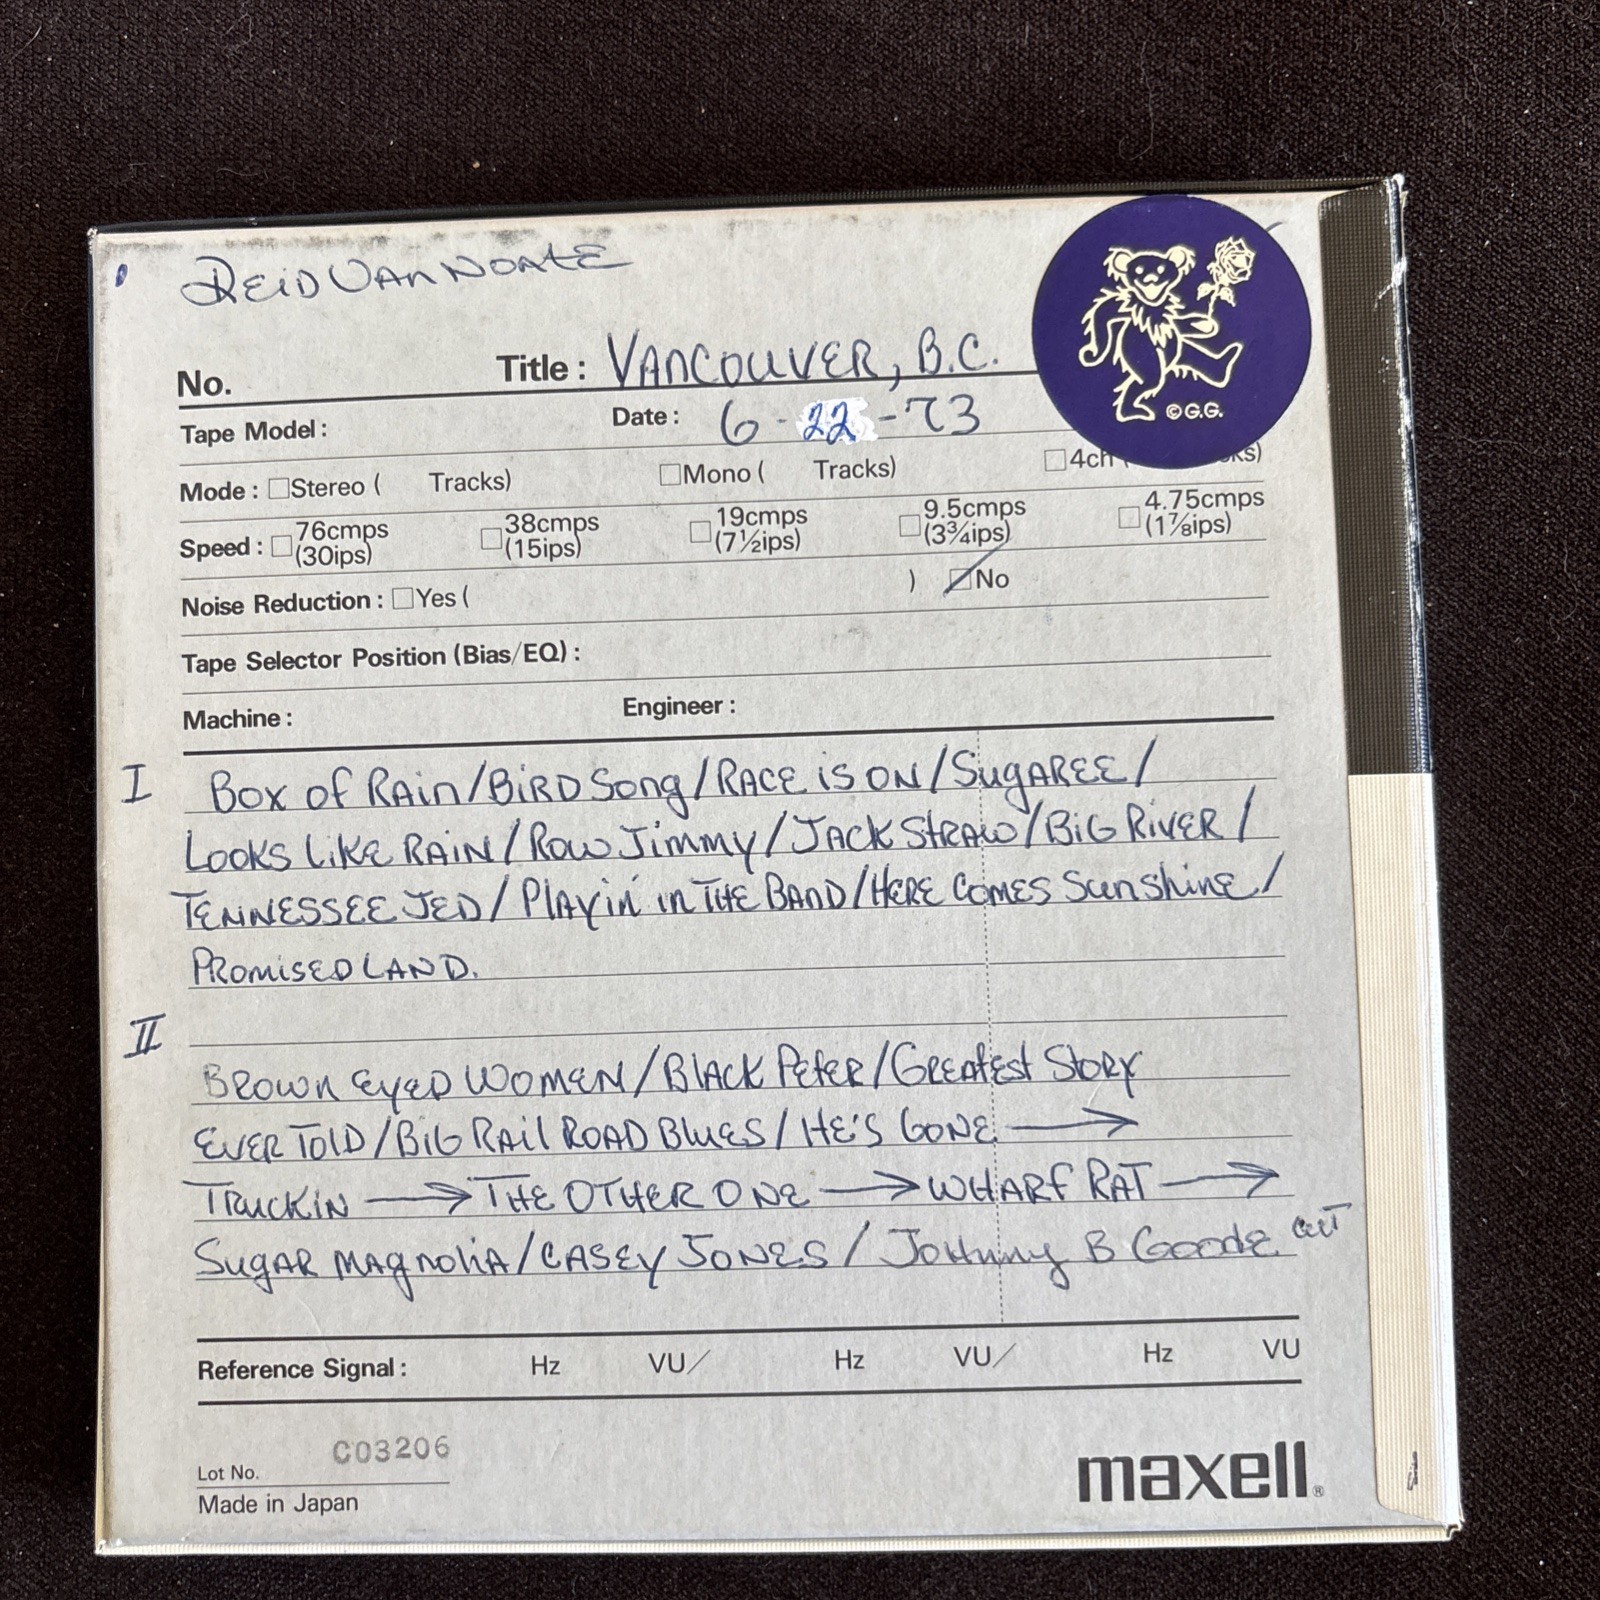 REID VAN NOATE
No. Title: VANCOUVER, B.C.
Tape Model: Date: 6-22-73
©G.G.
Mode: □Stereo ( Tracks) □Mono ( Tracks) □4ch
Speed: □76cmps (30ips) □38cmps (15ips) □19cmps (7½ips) □9.5cmps (3¾ips) □4.75cmps (1⅞ips)
Noise Reduction: □Yes ( ) □No
Tape Selector Position (Bias/EQ):
Machine: Engineer:
I BOX OF RAIN/BIRD SONG/RACE IS ON/SUGAREE/
LOOKS LIKE RAIN/ROW JIMMY/JACK STRAW/BIG RIVER/
TENNESSEE JED/PLAYIN' IN THE BAND/HERE COMES SUNSHINE/
PROMISED LAND.
II
BROWN EYED WOMEN/BLACK PETER/GREATEST STORY
EVER TOLD/BIG RAIL ROAD BLUES/HE'S GONE →
TRUCKIN → THE OTHER ONE → WHARF RAT →
SUGAR MAGNOLIA/CASEY JONES/Johnny B Goode cut
Reference Signal: Hz VU/ Hz VU/ Hz VU
Lot No. C03206
Made in Japan
maxell®